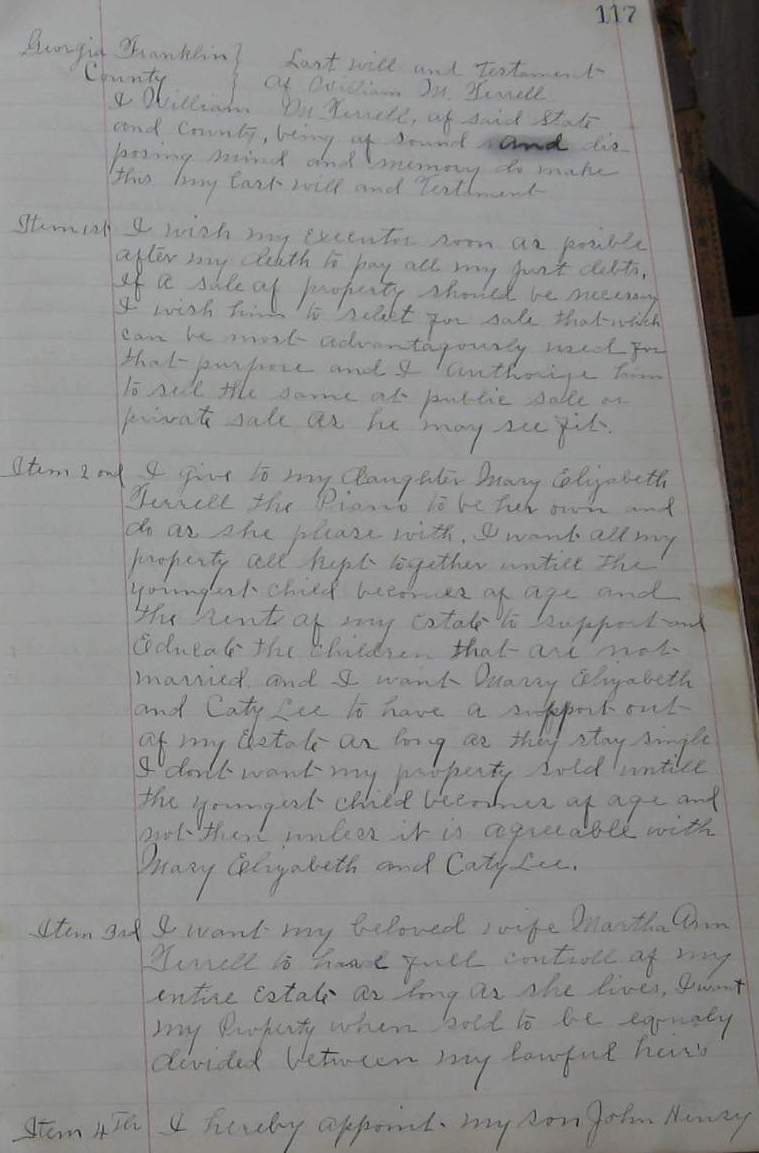 117
Georgia Franklin } Last will and Testament
County } of William M. Terrell
I William M Terrell, of said State
and County, being of sound and dis-
posing mind and memory do make
this my last will and Testament
Item 1st I wish my executor soon as posible
after my death to pay all my just debts,
if a sale of property should be necessary
I wish him to select for sale that which
can be most advantagously used for
that purpose and I authorize him
to sell the same at public sale or
private sale as he may see fit.
Item 2ond I give to my daughter Mary Elizabeth
Terrell the Piano to be her own and
do as she please with. I want all my
property all kept together untill the
youngest child becomes of age and
the rents of my Estate to support and
Educate the children that are not
married and I want Marry Elizabeth
and Caty Lee to have a support out
of my Estate as long as they stay single
I dont want my property sold untill
the youngest child becomes of age and
not then unless it is agreeable with
Mary Elizabeth and Caty Lee.
Item 3rd I want my beloved wife Martha Ann
Terrell to have full controll of my
entire Estate as long as she lives, I want
my Property when sold to be equaly
divided between my lawful heirs
Item 4th I hereby appoint my son John Henry